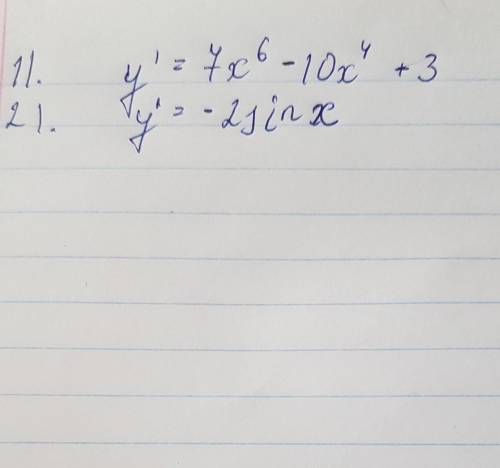 1). y' = 7x⁶ - 10x⁴ + 3
2). y' = - 2sinx